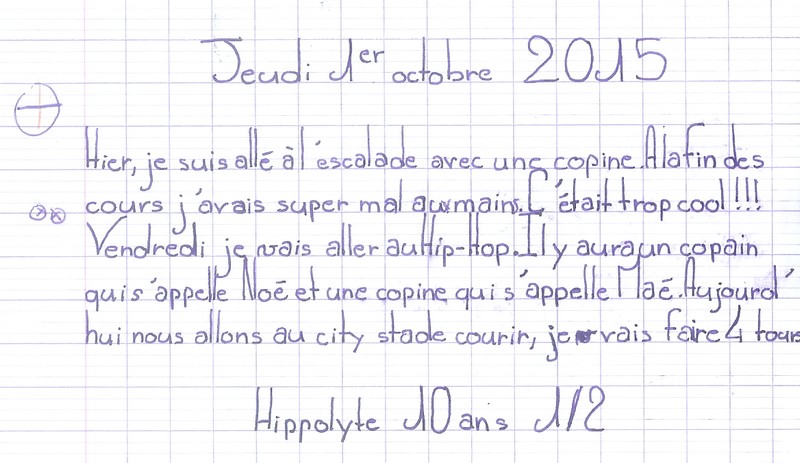 Jeudi 1er octobre 2015
Hier, je suis allé à l'escalade avec une copine. A la fin des
cours j'avais super mal aux mains. C'était trop cool!!!
Vendredi je vais aller au Hip-Hop. Il y aura un copain
qui s'appelle Noé et une copine qui s'appelle Maé. Aujourd'
hui nous allons au city stade courir, je vais faire 4 tours
Hippolyte 10 ans 1/2